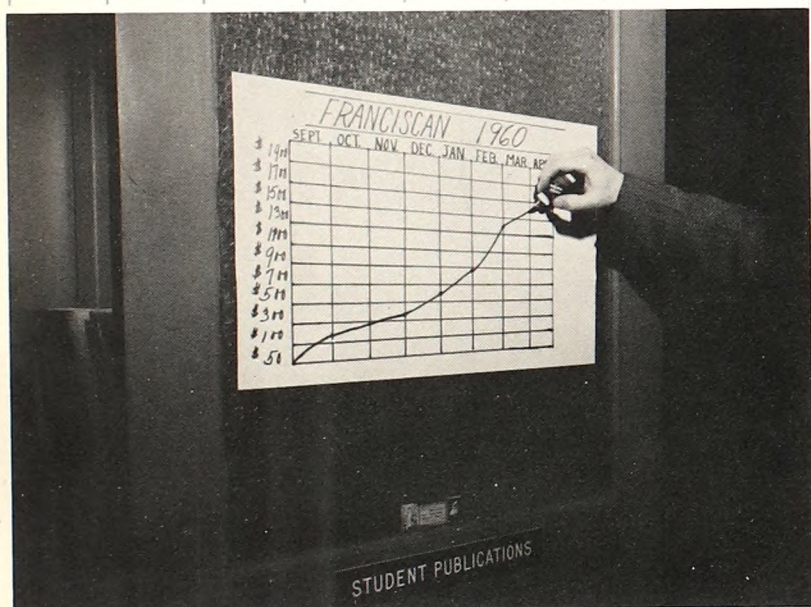 FRANCISCAN 1960
SEPT. OCT. NOV. DEC. JAN. FEB. MAR. APR
$ 1900
$ 1700
$ 1500
$ 1300
$ 1100
$ 900
$ 700
$ 500
$ 300
$ 100
$ 50
STUDENT PUBLICATIONS